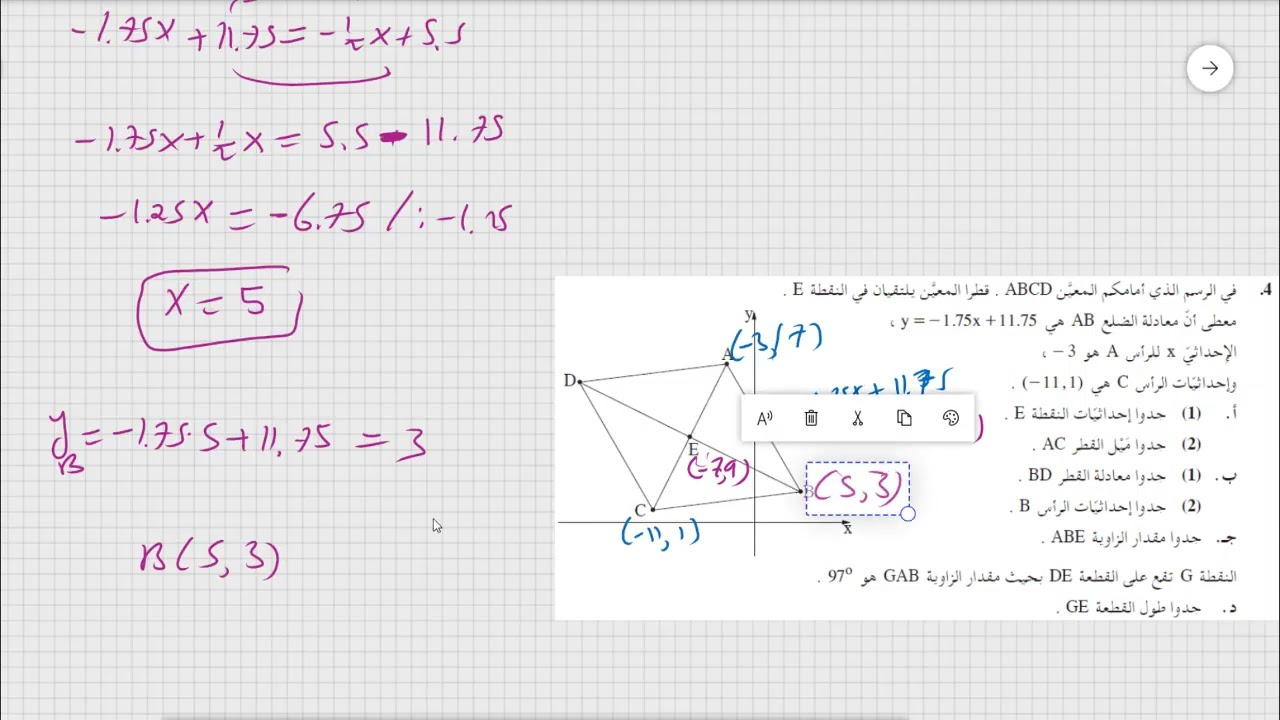 -1.75x + 11.75 = -½x + 5.5
-1.75x + ½x = 5.5 - 11.75
-1.25x = -6.75 /: -1.25
x = 5
y_B = -1.75·5 + 11.75 = 3
B(5, 3)
4. في الرسم الذي أمامكم المعيَّن ABCD . قطرا المعيَّن يلتقيان في النقطة E .
معطى أنّ معادلة الضلع AB هي y = −1.75x + 11.75 ،
الإحداثيّ x للرأس A هو 3− ،
وإحداثيّات الرأس C هي (−11, 1) .
أ. (1) جدوا إحداثيّات النقطة E .
(2) جدوا مَيْل القطر AC .
ب. (1) جدوا معادلة القطر BD .
(2) جدوا إحداثيّات الرأس B .
جـ. جدوا مقدار الزاوية ABE .
النقطة G تقع على القطعة DE بحيث مقدار الزاوية GAB هو 97° .
د. جدوا طول القطعة GE .
y
(-3, 7)
A
D
x + 11.75
A
E
(-7,9)
B (5, 3)
C
(-11, 1)
x